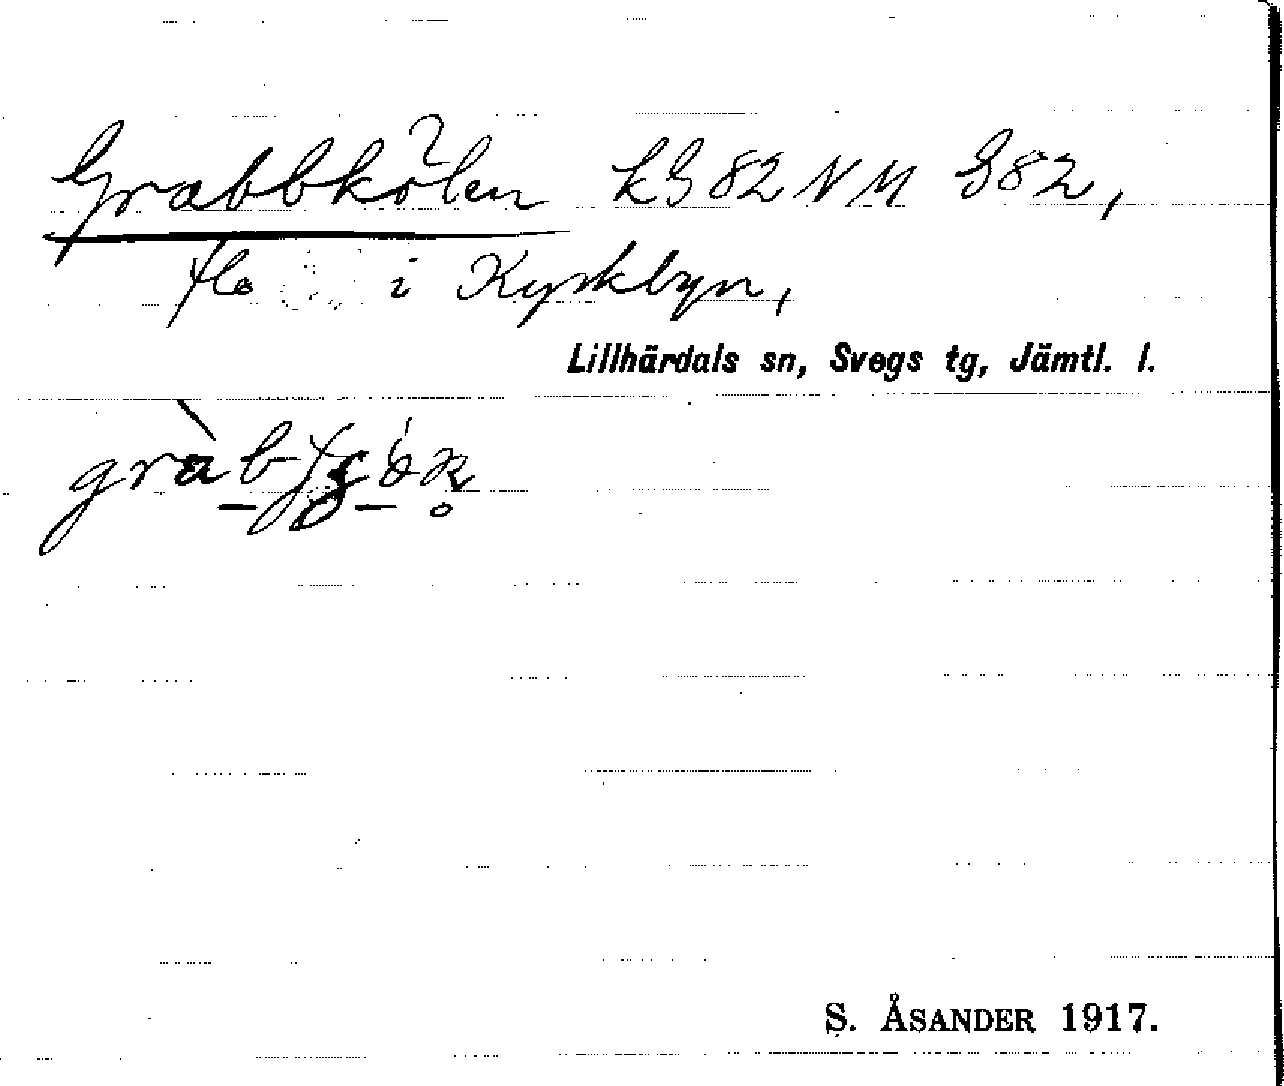 Grabbkölen LG 82 NM G82,
flo i Kyrkbyn,
Lillhärdals sn, Svegs tg, Jämtl. l.
S. ÅSANDER 1917.